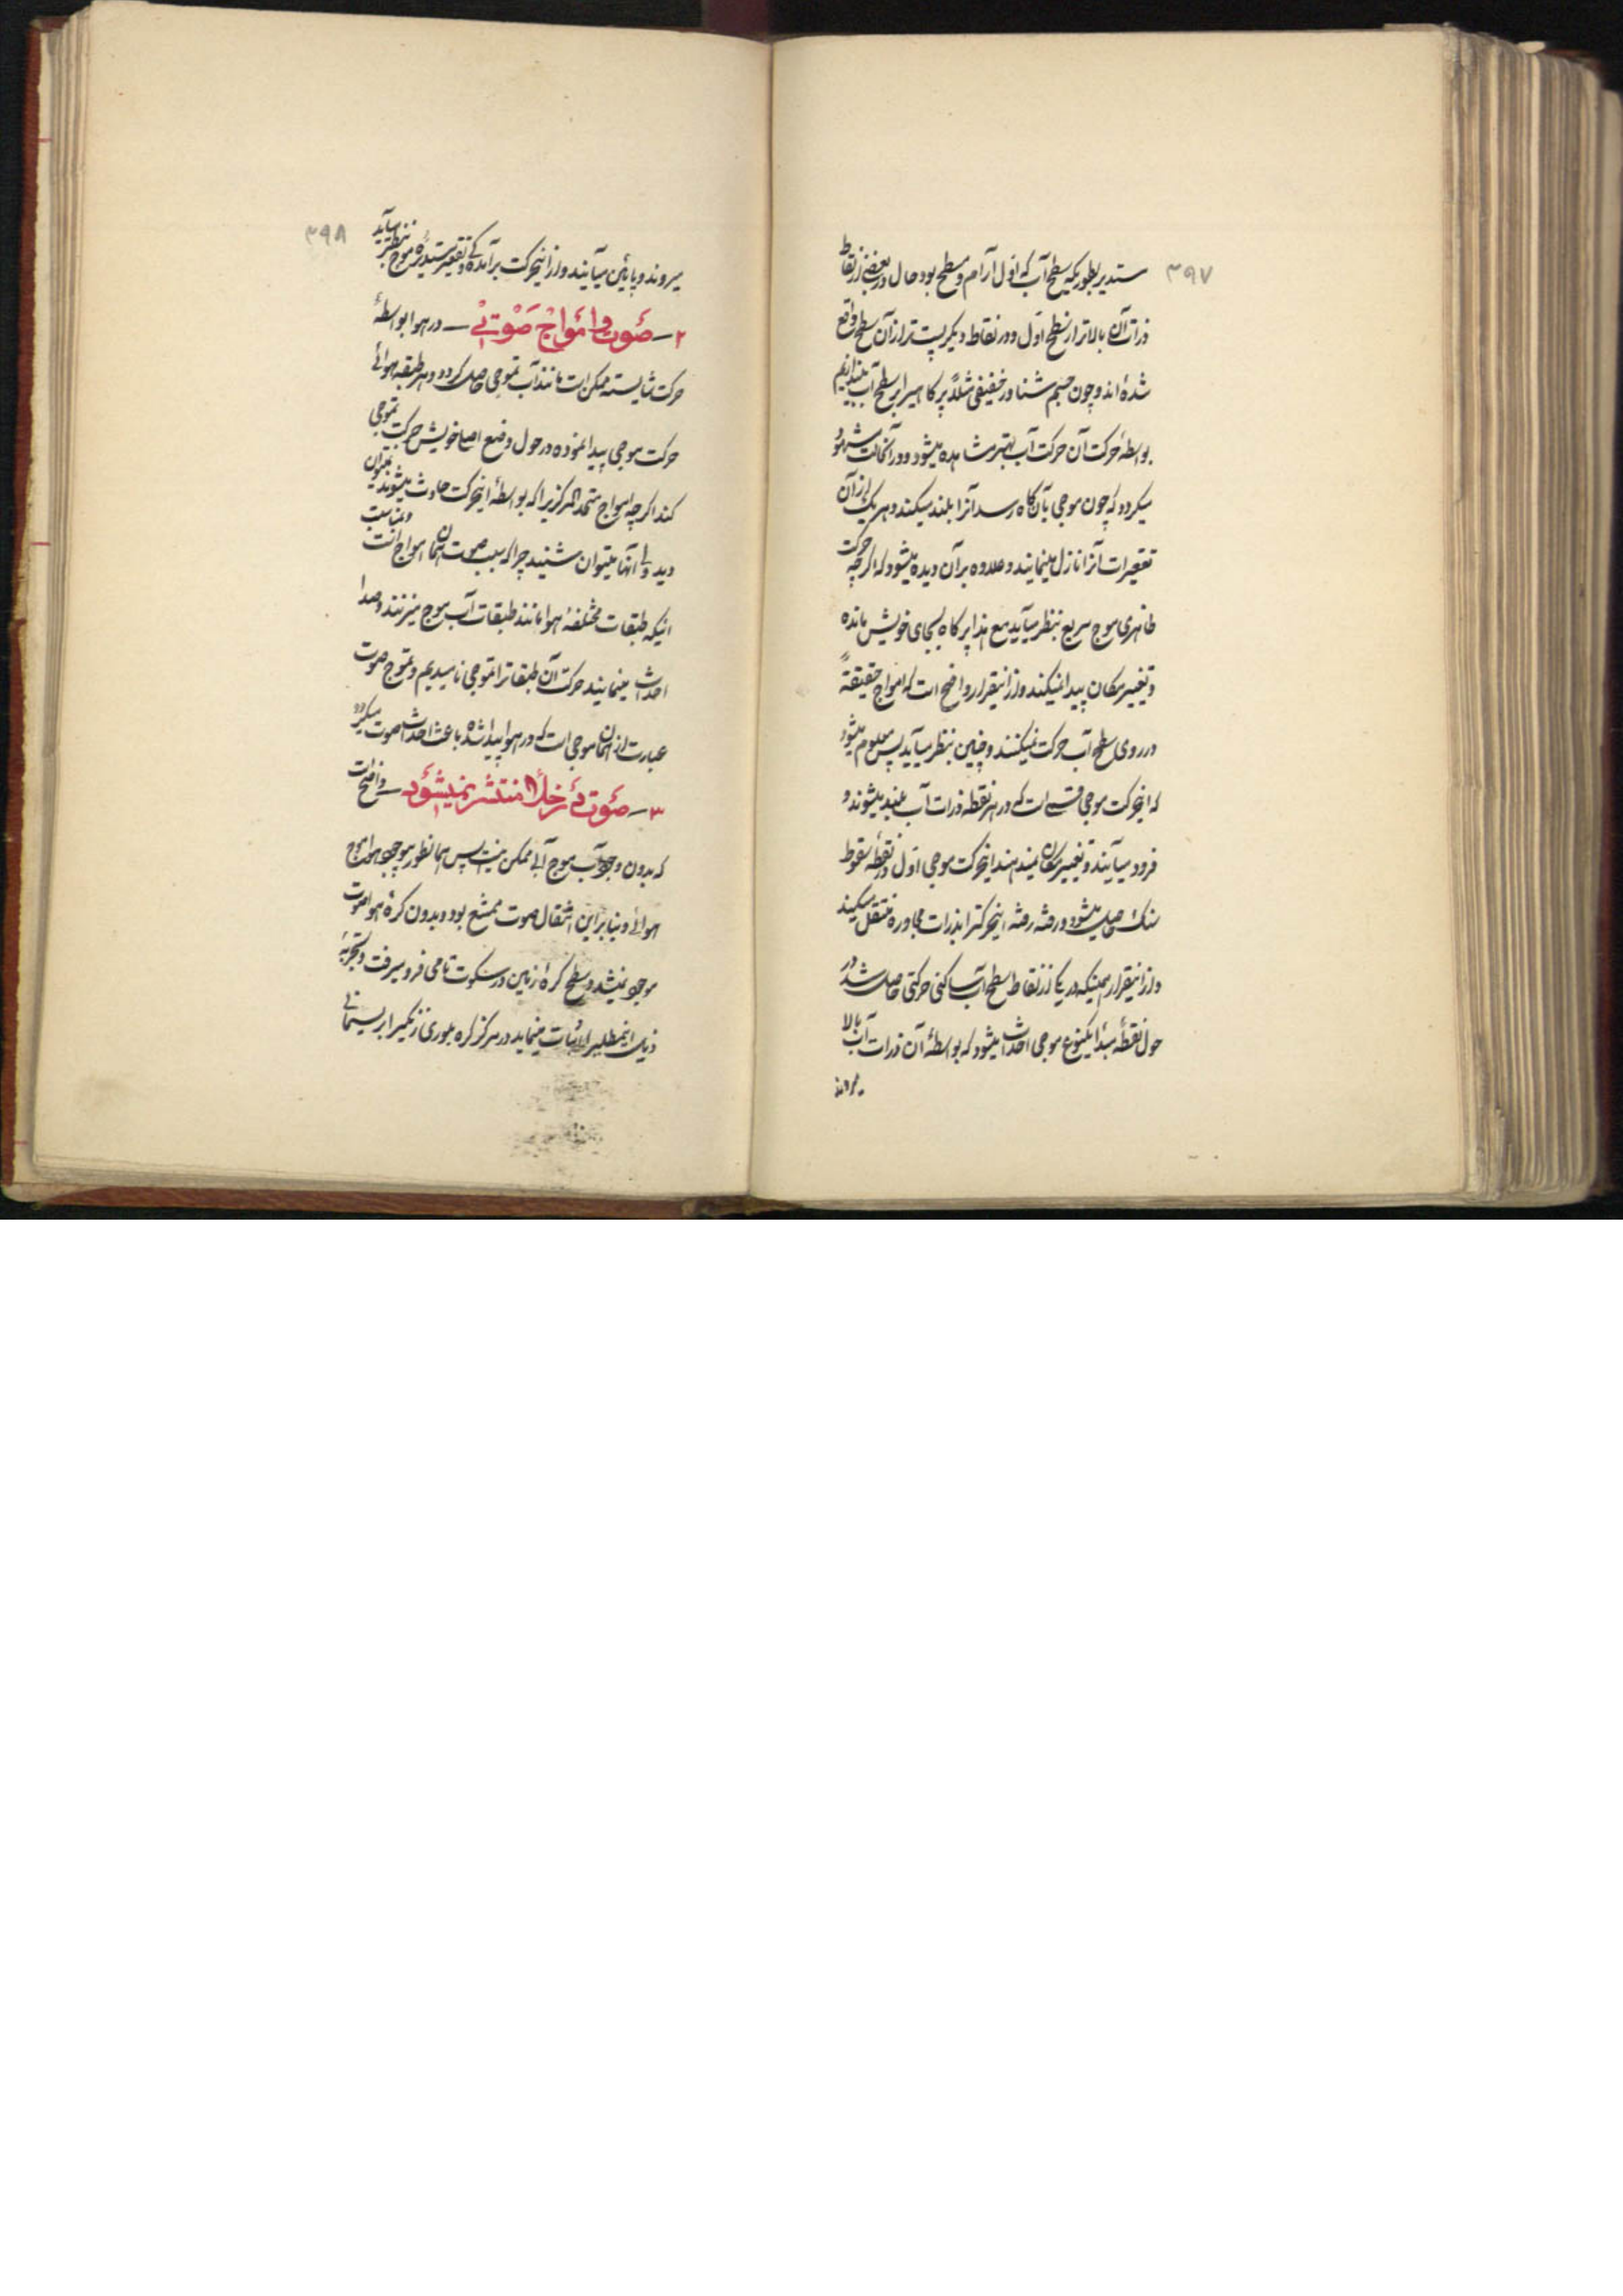 ۳۹۷
مستدیر بطوریکه سطح آب که اول آرام و مسطح بود حال در بعضی از نقاط
ذرات آن بالاتر از سطح اول و در نقاط دیگر پست‌تر از آن سطح واقع
شده‌اند و چون جسم شناور خفیفی مثلاً پر کاهیرا بر سطح آب بیندازیم
بواسطهٔ حرکت آن حرکت آب بهتر مشاهده میشود و در آنحالت مشهود
میگردد که چون موجی بآن کاه رسد آنرا بلند میکند و هر یک از آن
تقعیرات آنرا نازل مینمایند و علاوه بر آن دیده میشود که اگرچه حرکت
ظاهری موج سریع بنظر میآید مع هذا پر کاه بجای خویش مانده
و تغییر مکان پیدا نمیکند و از اینقرار واضح است که امواج حقیقةً
در روی سطح آب حرکت نمیکنند و چنین بنظر میآید پس معلوم میشود
که اینحرکت موجی قسمی است که در هر نقطه ذرات آب بلند میشوند و
فرود میآیند و تغییر مکان نمیدهند اینحرکت موجی اول در نقطهٔ سقوط
سنگ حاصل میشود و رفته رفته اینحرکترا بذرات مجاوره منتقل میکند
و از اینقرار همینکه در یکی از نقاط سطح آب ساکنی حرکتی حاصل شد در
حول نقطهٔ مبدأ یکنوع موجی احداث میشود که بواسطهٔ آن ذرات آب بالا
میروند
۳۹۸
میروند و پایین میآیند و از اینحرکت برآمدگی و تقعیر مستدیرهٔ موج بنظر میآید
۲ــ صوت و امواج صوتی ــ در هوا بواسطهٔ
حرکت شایسته ممکن است مانند آب تموجی حاصل گردد و هر طبقه هوائی
حرکت موجی پیدا نموده در حول وضع اصلی خویش حرکت تموجی
کند اگرچه امواج متحد المرکزیرا که بواسطهٔ اینحرکت حادث میشوند نمیتوان
دید ولی آنها میتوان شنید چرا که سبب صوت همان امواج است و بمناسبت
اینکه طبقات مختلفهٔ هوا مانند طبقات آب موج میزنند و صدا
احداث مینمایند حرکت آن طبقاترا تموجی نامیدیم و تموج صوت
عبارت از همان موجی است که در هوا پیدا شده باعث احداث صوت میگردد
۳ــ صوت در خلأ منتشر نمیشود ــ واضح است
که بدون وجود آب موج آبی ممکن نیست پس همانطور بیوجود هوا موج
هوائی و بنابراین انتقال صوت ممتنع بود و بدون کرهٔ هوا صوت
موجود نمیشد و سطح کرهٔ زمین در سکوت تامی فرو میرفت و تجربهٔ
ذیل اینمطلب را اثبات مینماید در مرکز کره بلوری زنگیرا بریسمانی